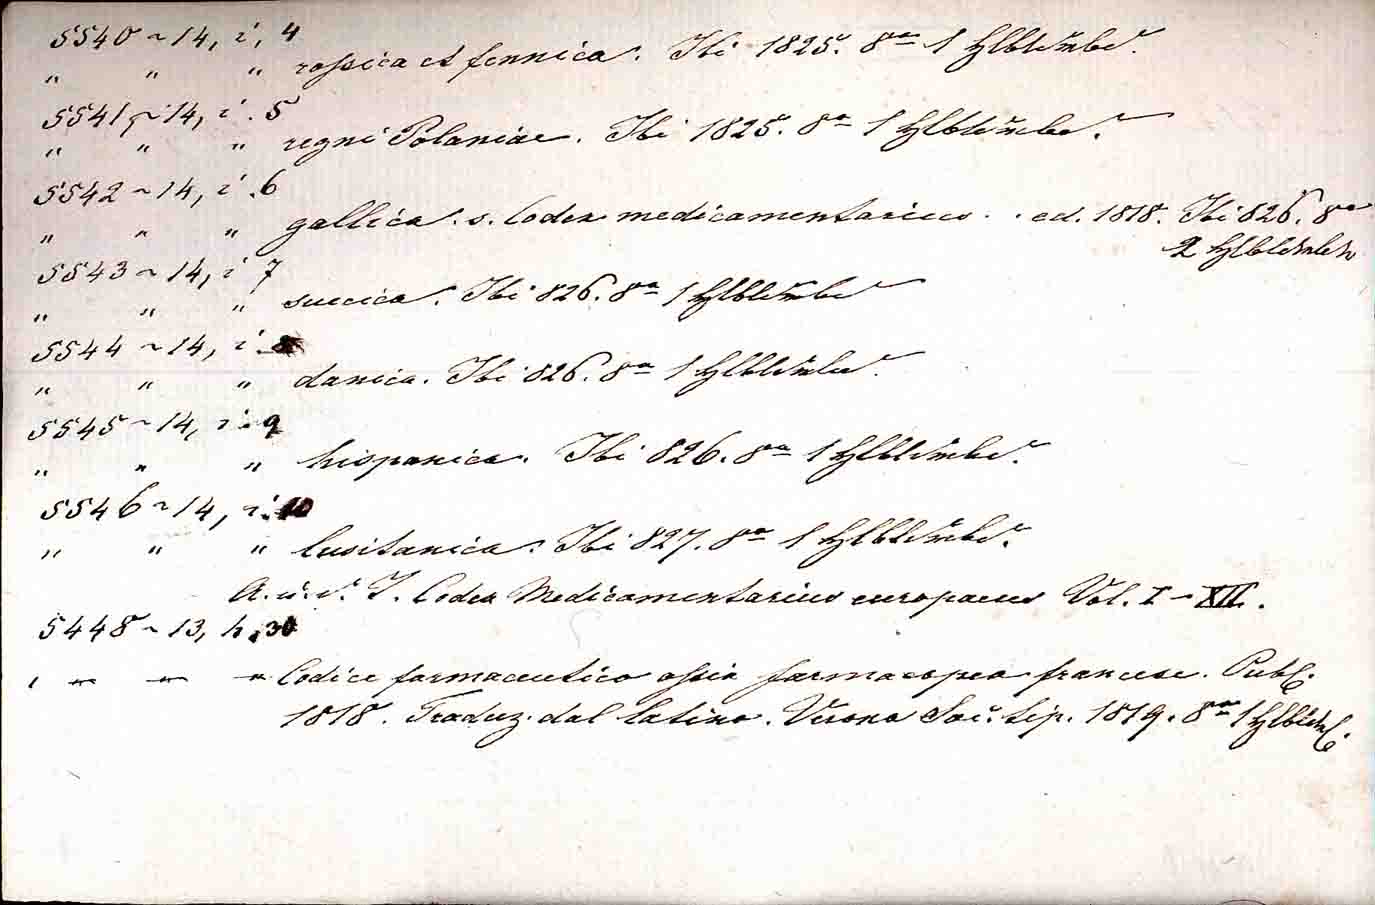 5540 ~ 14, i, 4
" " " rossica et fennica. Ibi 1825. 8°
5541 ~ 14, i. 5
" " " regni Poloniae. Ibi 1825. 8°
5542 ~ 14, i. 6
" " " gallica. s. Codex medicamentarius. ed. 1818. Ibi 826. 8°
2
5543 ~ 14, i 7
" " " suecica. Ibi 826. 8° 1
5544 ~ 14, i
" " " danica. Ibi 826. 8° 1
5545 ~ 14, i. 9
" " " hispanica. Ibi 826. 8° 1
5546 ~ 14, i. 10
" " " lusitanica. Ibi 827. 8° 1
A. u. d. T. Codex Medicamentarius europaeus Vol. I – XII.
5448 ~ 13, h, 30
" " " " Codice farmaceutico ossia farmacopea francese. Publ.
1818. Traduz. dal latino. Verona Soc. tip. 1819. 8° 1